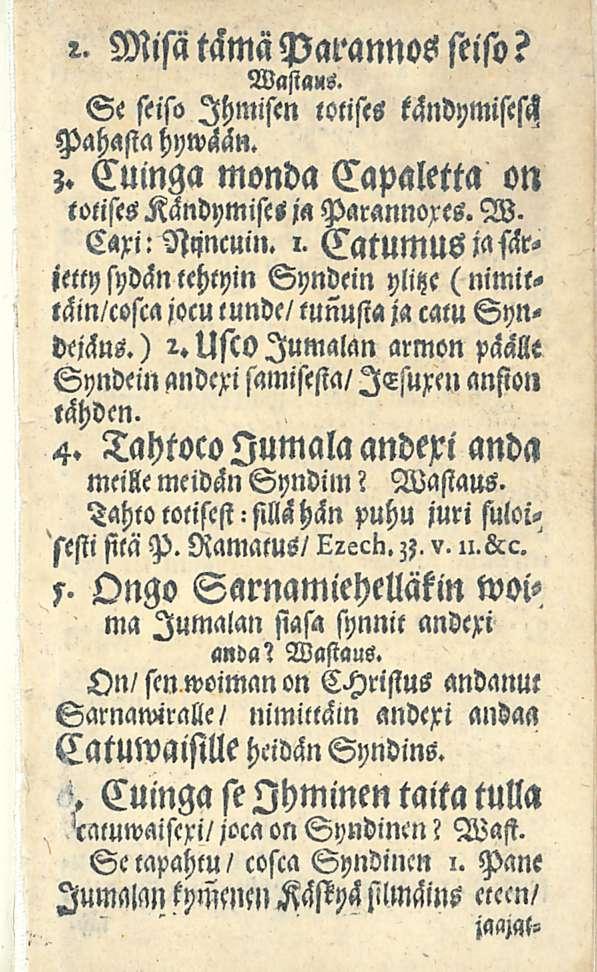 2. Misä tämä Parannos seiso?
Wastaus.
Se seiso Ihmisen totises kändymisesä
Pahasta hywään.
3. Cuinga monda Capaletta on
totises Kändymises ja Parannoxes. W.
Caxi: Nijncuin. 1. Catumus ja sär-
jetty sydän tehtyin Syndein ylitze (nimit-
täin/cosca jocu tunde/ tuñusta ja catu Syn-
dejäns.) 2. Usco Jumalan armon päälle
Syndein andexi samisesta/ JEsuxen ansion
tähden.
4. Tahtoco Jumala andexi anda
meille meidän Syndim? Wastaus.
Tahto totisest: sillä hän puhu juri suloi-
sesti sitä P. Ramatus/ Ezech. 33. v. 11. &c.
5. Ongo Sarnamiehelläkin woi-
ma Jumalan siasa synnit andexi
anda? Wastaus.
On/ sen woiman on CHristus andanut
Sarnawiralle/ nimittäin andexi andaa
Catuwaisille heidän Syndins.
6. Cuinga se Ihminen taita tulla
catuwaisexi/ joca on Syndinen? Wast.
Se tapahtu/ cosca Syndinen 1. Pane
Jumalan kym̃enen Käskyä silmäins eteen/
jaajat-